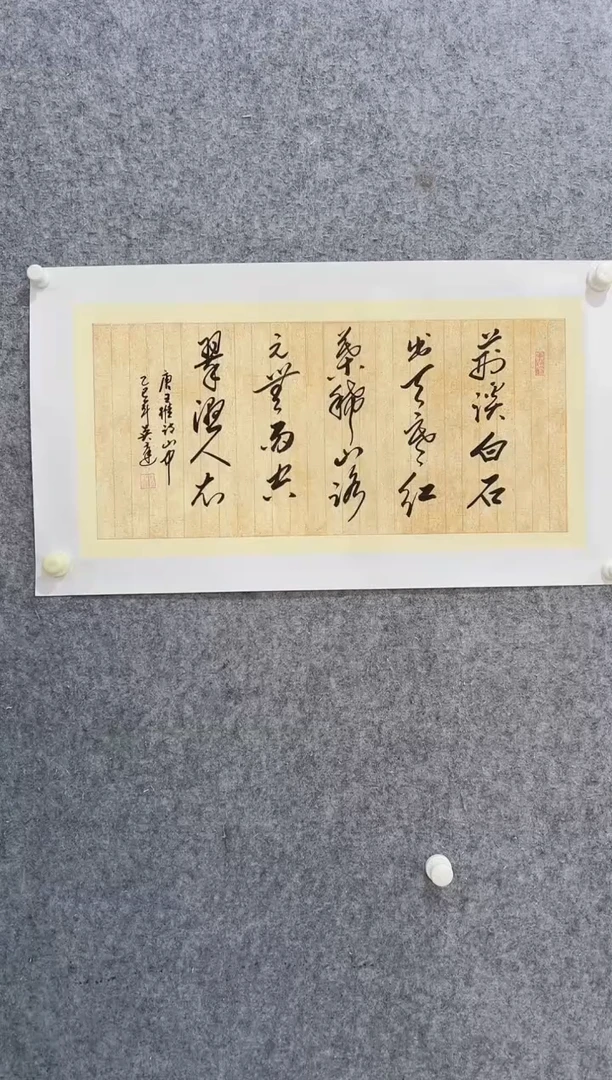 荊溪白石
出天寒红
葉稀山路
元無雨空
翠濕人衣
唐王維诗山中
乙巳年